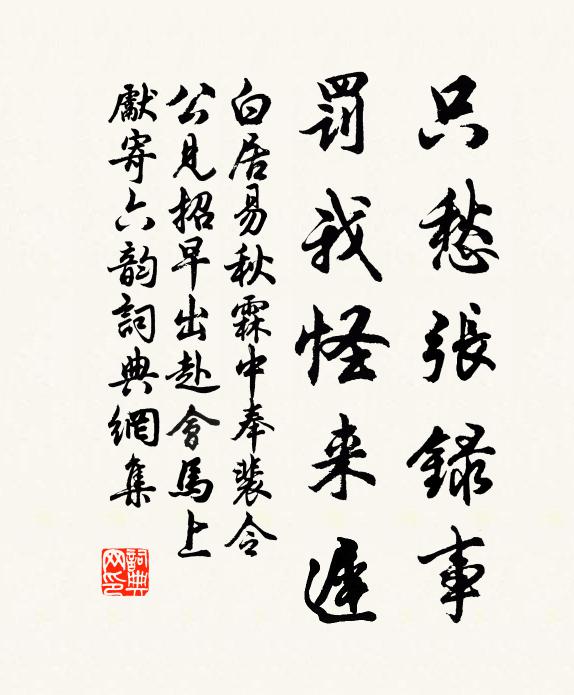 只愁張録事
罰我怪来遲
白居易秋霖中奉裴令
公見招早出赴會馬上
獻寄六韵詞典網集
詞典
网印